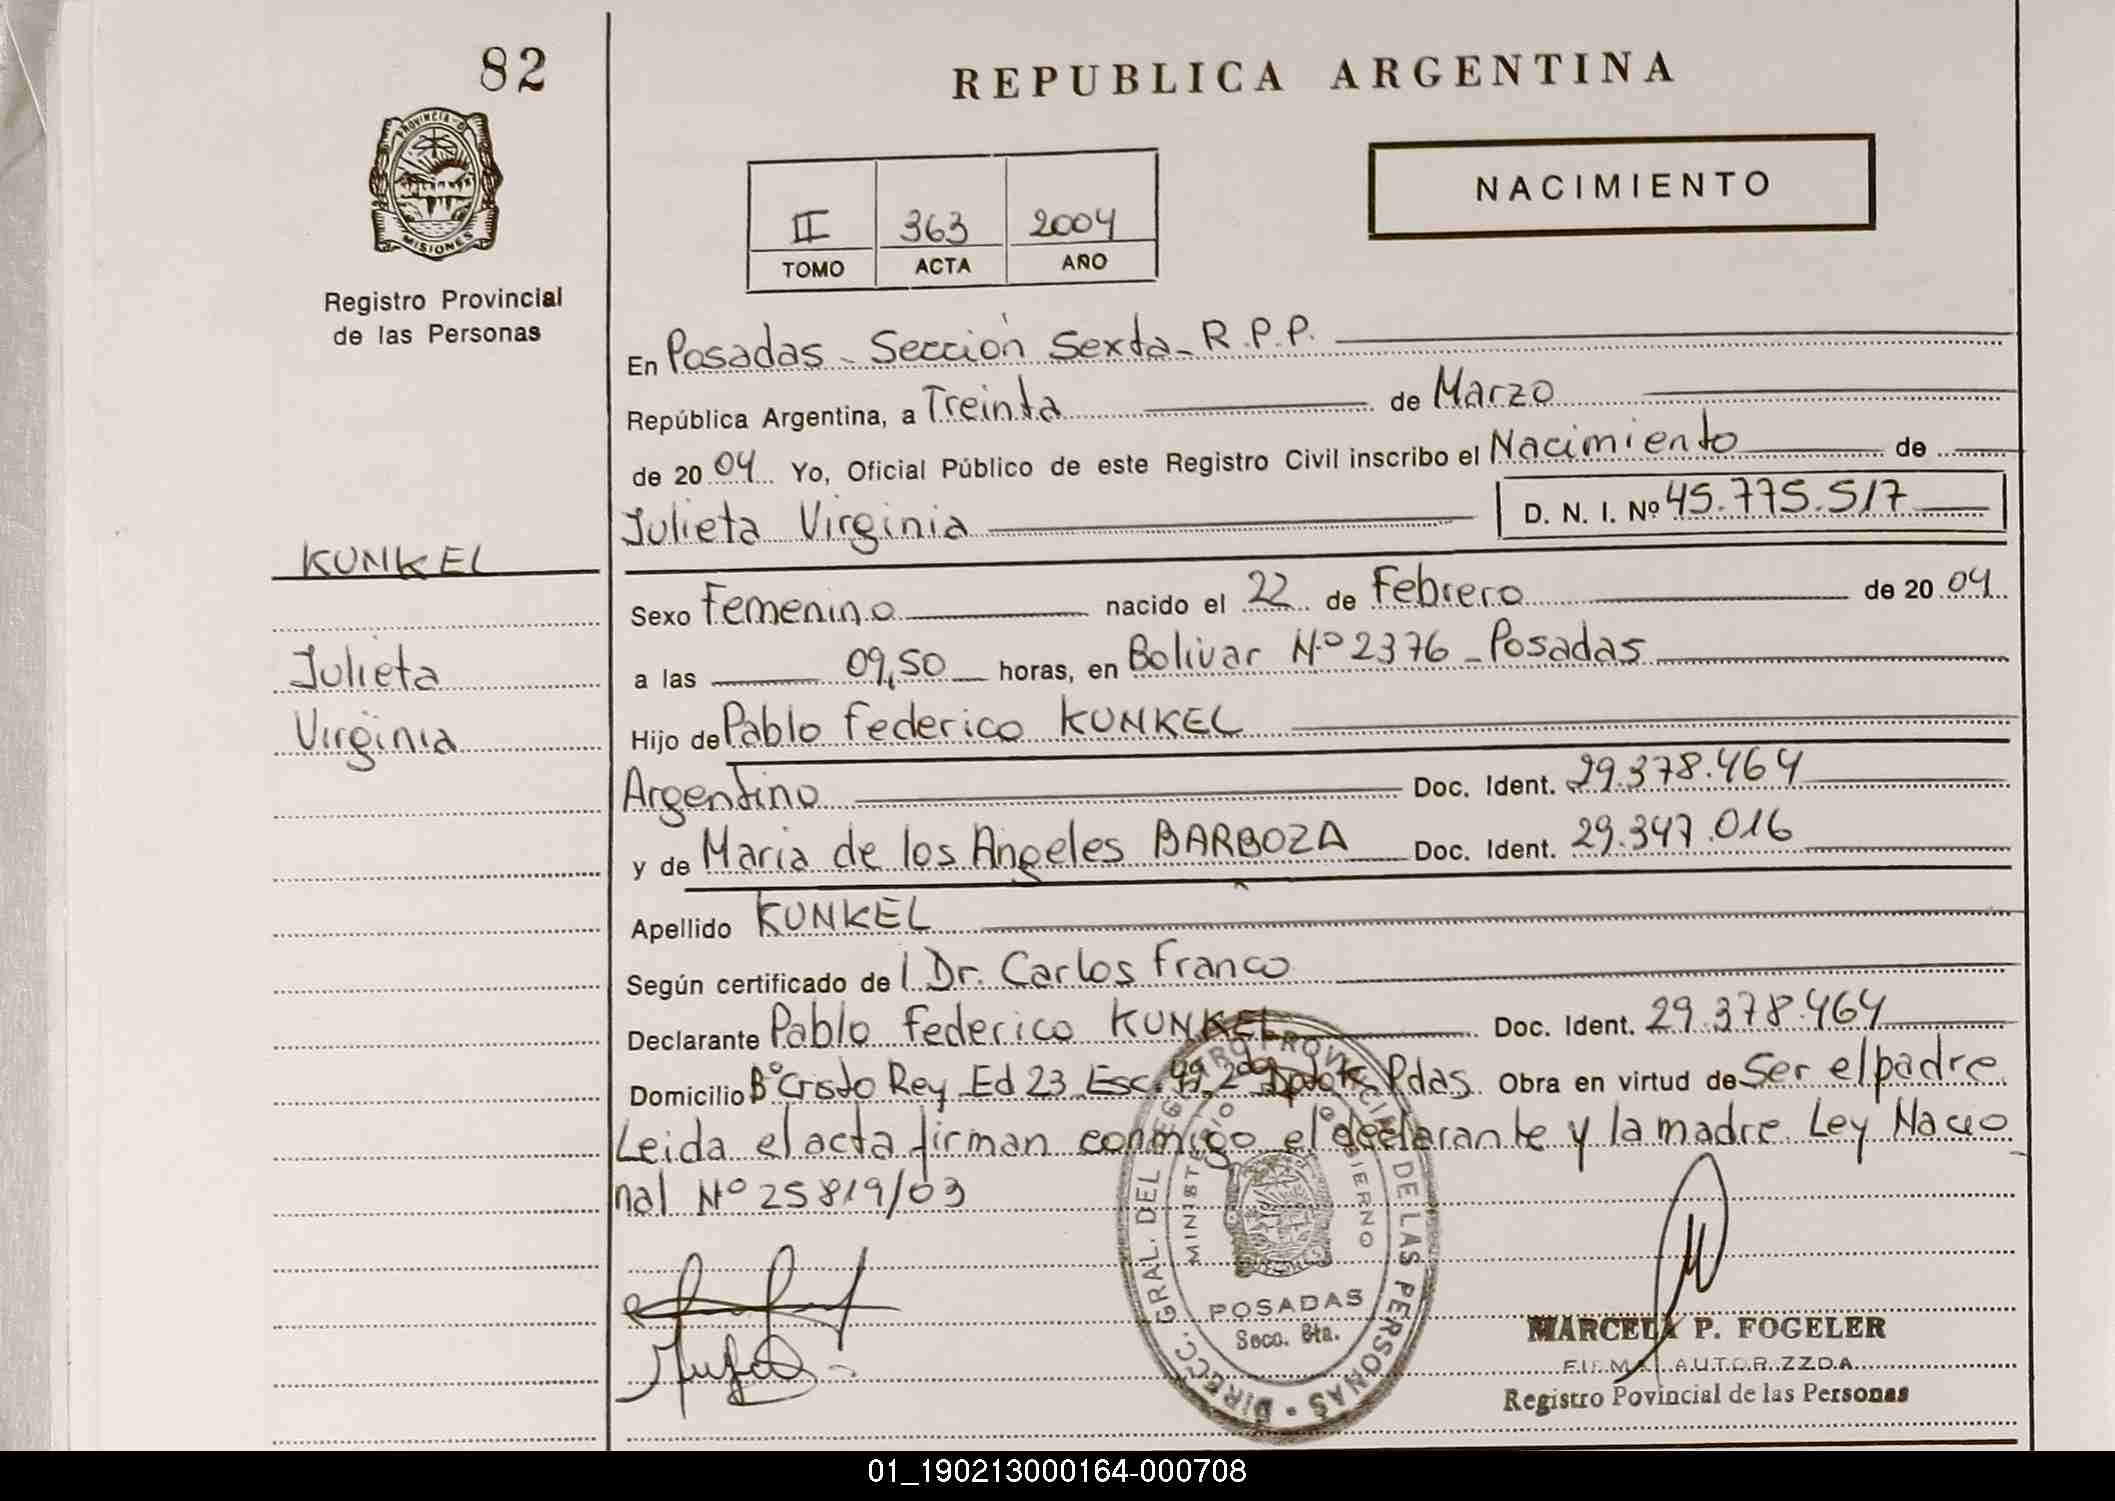 82
REPUBLICA ARGENTINA
PROVINCIA D
MISIONES
Registro Provincial
de las Personas
NACIMIENTO
II 363 2004
TOMO ACTA AÑO
En Posadas - Sección Sexta - R.P.P.
República Argentina, a Treinta de Marzo
de 20 04 Yo, Oficial Público de este Registro Civil inscribo el Nacimiento de
Julieta Virginia D. N. I. Nº 45.775.517
KUNKEL
Julieta
Virginia
Sexo Femenino nacido el 22 de Febrero de 20 04
a las 09,50 horas, en Bolivar Nº 2376 - Posadas
Hijo de Pablo Federico KUNKEL
Argentino Doc. Ident. 29.378.464
y de Maria de los Angeles BARBOZA Doc. Ident. 29.347.016
Apellido KUNKEL
Según certificado de l Dr. Carlos Franco
Declarante Pablo Federico KUNKEL Doc. Ident. 29.378.464
Domicilio Bº Cristo Rey Ed 23 Esc. Pdas. Obra en virtud de Ser el padre
Leida el acta firman conmigo el declarante y la madre Ley Nacio
nal Nº 25819/03
DIRECC. GRAL. DEL REGISTRO PROVINCIAL DE LAS PERSONAS
MINISTERIO DE GOBIERNO
POSADAS
Secc. 6ta.
MARCELA P. FOGELER
FIRMA AUTORIZZDA
Registro Povincial de las Personas
01_190213000164-000708